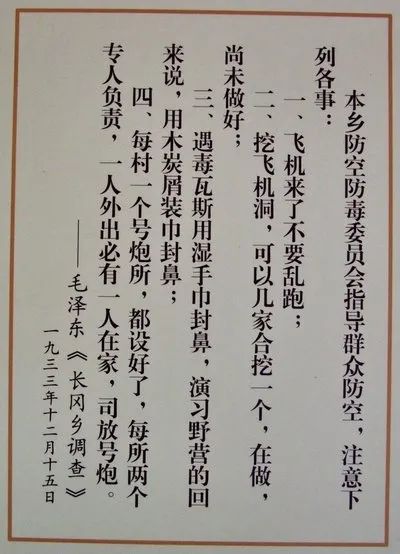 本乡防空防毒委员会指导群众防空，注意下
列各事：
一、飞机来了不要乱跑；
二、挖飞机洞，可以几家合挖一个，在做，
尚未做好；
三、遇毒瓦斯用湿手巾封鼻，演习野营的回
来说，用木炭屑装巾封鼻；
四、每村一个号炮所，都设好了，每所两个
专人负责，一人外出必有一人在家，司放号炮。
——毛泽东《长冈乡调查》
一九三三年十二月十五日